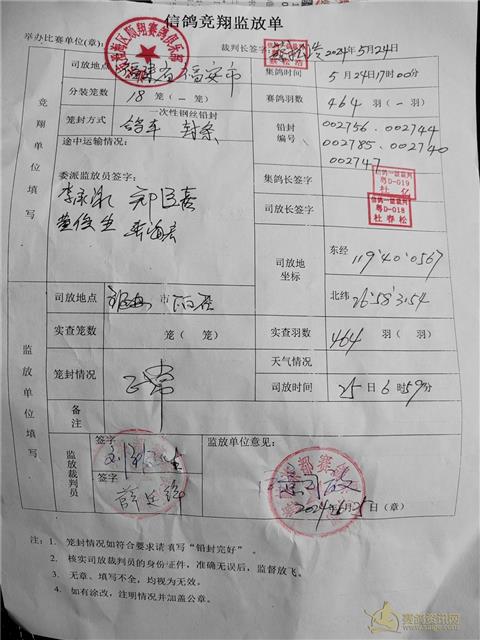 信鸽竞翔监放单
举办比赛单位(章): 裁判长签字: 2024年5月24日
司放地点 福建省福安市 集鸽时间 5月24日17时00分
分装笼数 18笼(一笼) 赛鸽羽数 464羽(一羽)
笼封方式 一次性钢丝铅封 鸽车 封条 铅封编号 002756、002744
002785、002740
002747
途中运输情况:
竞翔单位填写
委派监放员签字:
集鸽长签字
信鸽一级裁判
粤D-019
司放长签字
信鸽一级裁判
粤D-018
杜春松
司放地坐标 东经 119°40′0567
北纬 26°58′3154
司放地点 市
实查笼数 笼(笼) 实查羽数 464羽(羽)
天气情况
笼封情况 正常 司放时间 25日6时59分
备注
监放单位填写
监放裁判员 签字
签字
监放单位意见:
2024年5月25日(章)
注: 1. 笼封情况如符合要求请填写“铅封完好”。
2. 核实司放裁判员的身份证件,准确无误后,监督放飞。
3. 无章、填写不全,均视为无效。
4. 如有涂改,注明情况并加盖公章。
赛鸽资讯网